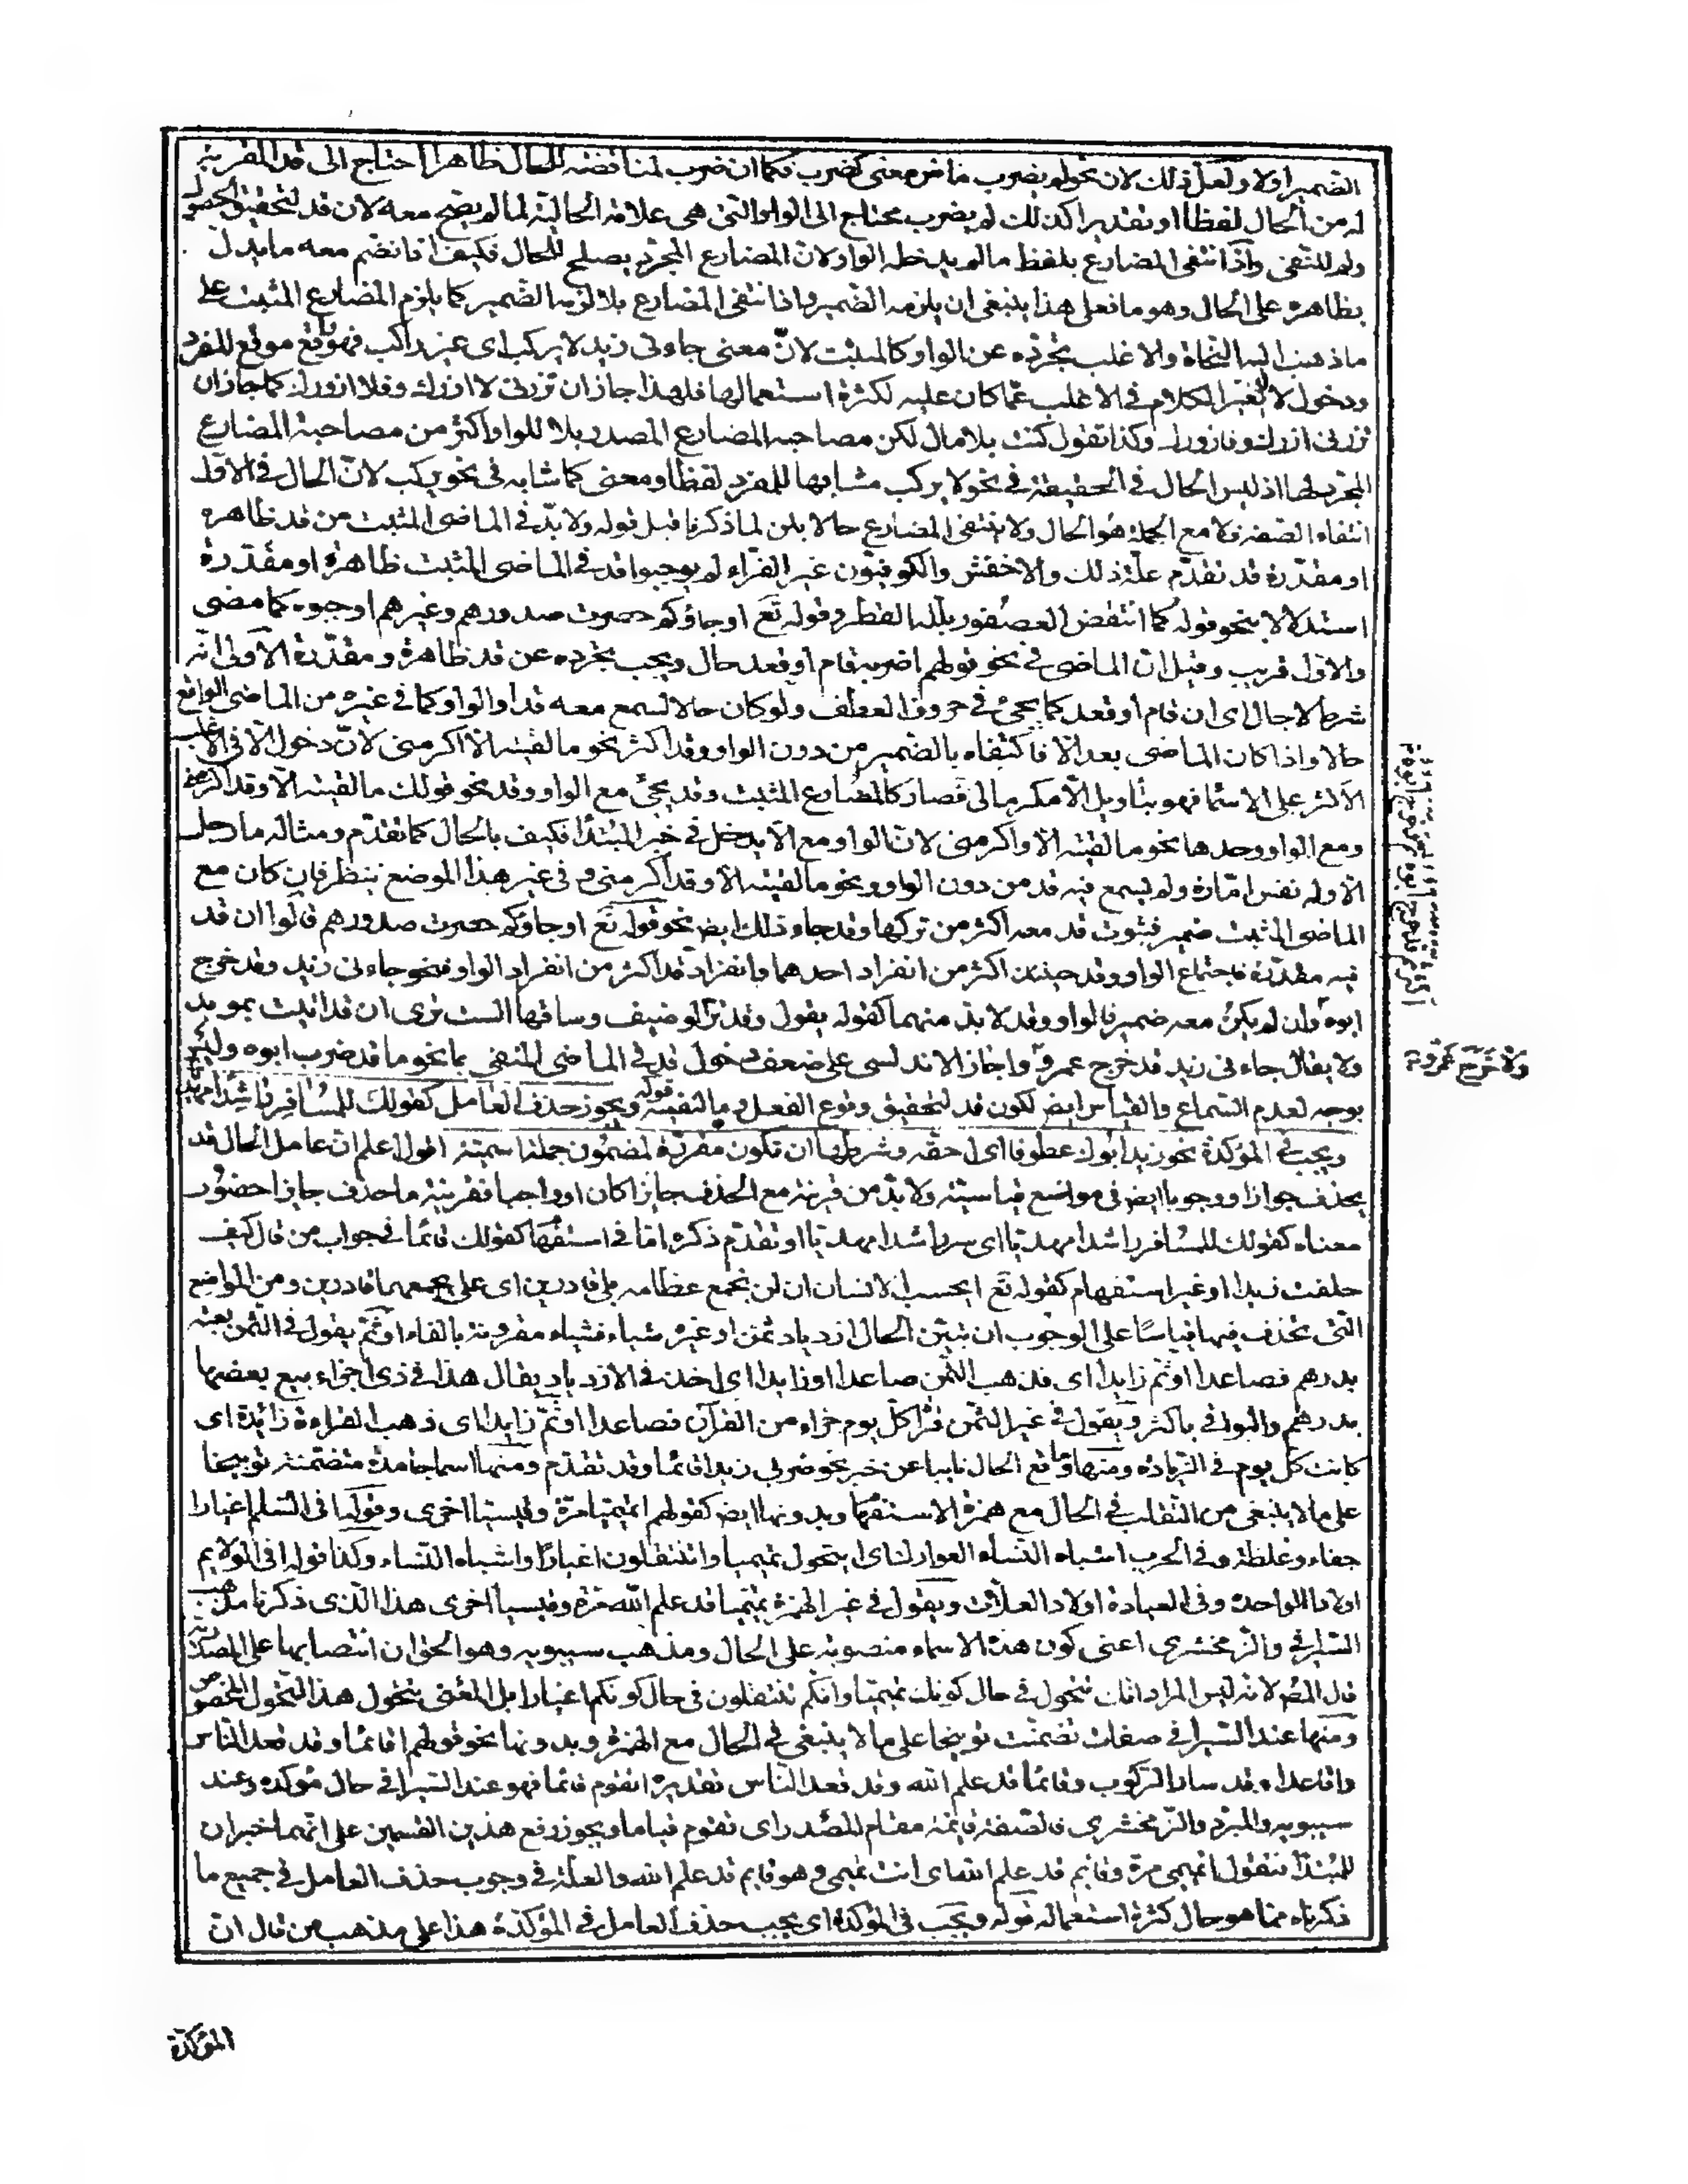 الضمير اولا ولعل ذلك لان نحو لم يضرب ماض معنى كضرب فكما ان ضرب لمناقضته للحال ظاهرا احتاج الى قد المقربة
له من الحال لفظا او تقديرا كذلك لم يضرب يحتاج الى الواو التى هى علامة الحالية لما لم يصح معه لان قد لتحقيق الحصول
ولم للنفى واذا انتفى المضارع بلفظ ما لم يدخله الواو لان المضارع المجرد يصلح للحال فكيف اذا انضم معه ما يدل
بظاهره على الحال وهو ما فعلى هذا ينبغى ان يلزمه الضمير واذا انتفى المضارع بلا لزمه الضمير كما يلزم المضارع المثبت على
ما ذهب اليه النحاة والاغلب تجرده عن الواو كالمثبت لان معنى جاءنى زيد لا يركب اى غير راكب فهو واقع موقع المفرد
ودخول لا لا يغير الكلام فى الاغلب عما كان عليه لكثرة استعمالها فلهذا جاز ان تزرنى لا ازرك وفلا ازورك كما جاز ان
تزرنى ازرك وفازورك وكذا تقول كنت بلا مال لكن مصاحبة المضارع المصدر بلا للواو اكثر من مصاحبة المضارع
المجرد لها اذ ليس الحال فى الحقيقة فى نحو لا يركب مشابها للمفرد لفظا ومعنى كما شابه فى نحو يركب لان الحال فى الاول
انتفاء الصفة فلا مع الجملة هو الحال ولا ينتفى المضارع حالا بلن لما ذكرنا قبل قوله ولا بد فى الماضى المثبت من قد ظاهرة
او مقدرة قد تقدم علة ذلك والاخفش والكوفيون غير الفراء لم يوجبوا قد فى الماضى المثبت ظاهرة او مقدرة
استدلالا بنحو قوله كما انتفض العصفور بلله القطر وقوله تع او جاؤكم حصرت صدورهم وغيرهم اوجبوه كما مضى
والاول قريب وقيل ان الماضى فى نحو قولهم اضربه قام او قعد حال ويجب تجرده عن قد ظاهرة ومقدرة الاولى انه
شرط لا حال اى ان قام او قعد كما يجئ فى حروف العطف ولو كان حالا لسمع معه قد او الواو كما فى غيره من الماضى الواقع
حالا واذا كان الماضى بعد الا فاكتفاه بالضمير من دون الواو وقد اكثر نحو ما لقيته الا اكرمنى لان دخول الا فى الاغلب
الاكثر على الاسما فهو بتاويل الا مكرما لى فصار كالمضارع المثبت وقد يجئ مع الواو وقد نحو قولك ما لقيته الا وقد اكرمنى
ومع الواو وحدها نحو ما لقيته الا واكرمنى لان الواو مع الا يدخل فى خبر المبتدا فكيف بالحال كما تقدم ومثاله ما رجل
الا وله نفس امارة ولم يسمع فيه قد من دون الواو ونحو ما لقيته الا وقد اكرمنى وفى غير هذا الموضع ينظر فان كان مع
الماضى المثبت ضمير فثبوت قد معه اكثر من تركها وقد جاء ذلك ايض نحو قوله تع او جاؤكم حصرت صدورهم قالوا ان قد
فيه مقدرة فاجتماع الواو وقد حينئذ اكثر من انفراد احدهما وانفراد قد اكثر من انفراد الواو فنحو جاءنى زيد وقد خرج
ابوه وان لم يكن معه ضمير فالواو وقد لا بد منهما كقوله يقول وقد تر الوضيف وساقها الست ترى ان قد اتيت بمويد
ولا يقال جاءنى زيد قد خرج عمرو واجاز الاندلسى على ضعف دخول قد فى الماضى المنفى بما نحو ما قد ضرب ابوه وليس
بوجه لعدم السماع والقياس ايض لكون قد لتحقيق وقوع الفعل وما لنفيه قوله ويجوز حذف العامل كقولك للمسافر راشدا مهديا
ويجب فى المؤكدة نحو زيد ابوك عطوفا اى احقه وشرطها ان تكون مقررة لمضمون جملة اسمية اقول اعلم ان عامل الحال قد
يحذف جوازا ووجوبا ايض فى مواضع قياسية ولا بد من قرينة مع الحذف جايزا كان او واجبا فقرينة ما حذف جايزا حضور
معناه كقولك للمسافر راشدا مهديا اى سر راشدا مهديا او تقدم ذكره اما فى استفهام كقولك قائما فى جواب من قال كيف
خلفت زيدا او غير استفهام كقوله تع ايحسب الانسان ان لن نجمع عظامه بلى قادرين اى على نجمعها قادرين ومن المواضع
التى تحذف فيها قياسا على الوجوب ان تبين الحال ازدياد ثمن او غيره شياء فشياء مقرونة بالفاء او ثم يقول فى الثمن بعته
بدرهم فصاعدا او ثم زايدا اى فذهب الثمن صاعدا او زايدا اى اخذ فى الازدياد يقال هذا فى ذى اجزاء بيع بعضها
بدرهم والبواقى باكثر ويقول فى غير الثمن قرا كل يوم جزاء من القرآن فصاعدا او ثم زايدا اى ذهب القراءة زائدة اى
كانت كل يوم فى الزيادة ومنها ما وقع الحال نايبا عن خبر نحو ضربى زيدا قائما وقد تقدم ومنها اسما جامدة متضمنة توبيخا
على ما لا ينبغى من التقلب فى الحال مع همزة الاستفهام وبدونها ايض كقولهم اتميميا مرة وقيسيا اخرى وقولها افى السلم اعيارا
جفاء وغلظة وفى الحرب اشباه النساء العوارك اى اتتحول تميميا واتنتقلون اعيارا واشباه النساء وكذا قوله افى الولايم
اولادا لواحدة وفى العيادة اولاد العلات ويقول فى غير الهمزة تميميا قد علم الله مرة وقيسيا اخرى هذا الذى ذكرنا مذهب
السيرافى والزمخشرى اعنى كون هذه الاسماء منصوبة على الحال ومذهب سيبويه وهو الحق ان انتصابها على المصدرية
قال المص لانه ليس المراد انك تتحول فى حال كونك تميميا وانكم تنتقلون فى حال كونكم اعيارا بل المعنى تتحول هذا التحول المخصوص
ومنها عند السيرافى صفات تضمنت توبيخا على ما لا ينبغى فى الحال مع الهمزة وبدونها نحو قولهم اقائما وقد قعد الناس
واقاعدا وقد سار الركوب وقائما قد علم الله وقد قعد الناس تقديره اتقوم قائما فهو عند السيرافى حال مؤكدة وعند
سيبويه والمبرد والزمخشرى فالصفة قائمة مقام المصدر اى تقوم قياما ويجوز رفع هذين القسمين على انهما خبران
للمبتدا فتقول اتميمى مرة وقايم قد علم الله اى انت تميمى وهو قايم قد علم الله والعلة فى وجوب حذف العامل فى جميع ما
ذكرناه مما هو حال كثرة استعماله قوله ويجب فى المؤكدة اى يجب حذف العامل فى المؤكدة هذا على مذهب من قال ان
ولا خرج عمرو
المؤكدة